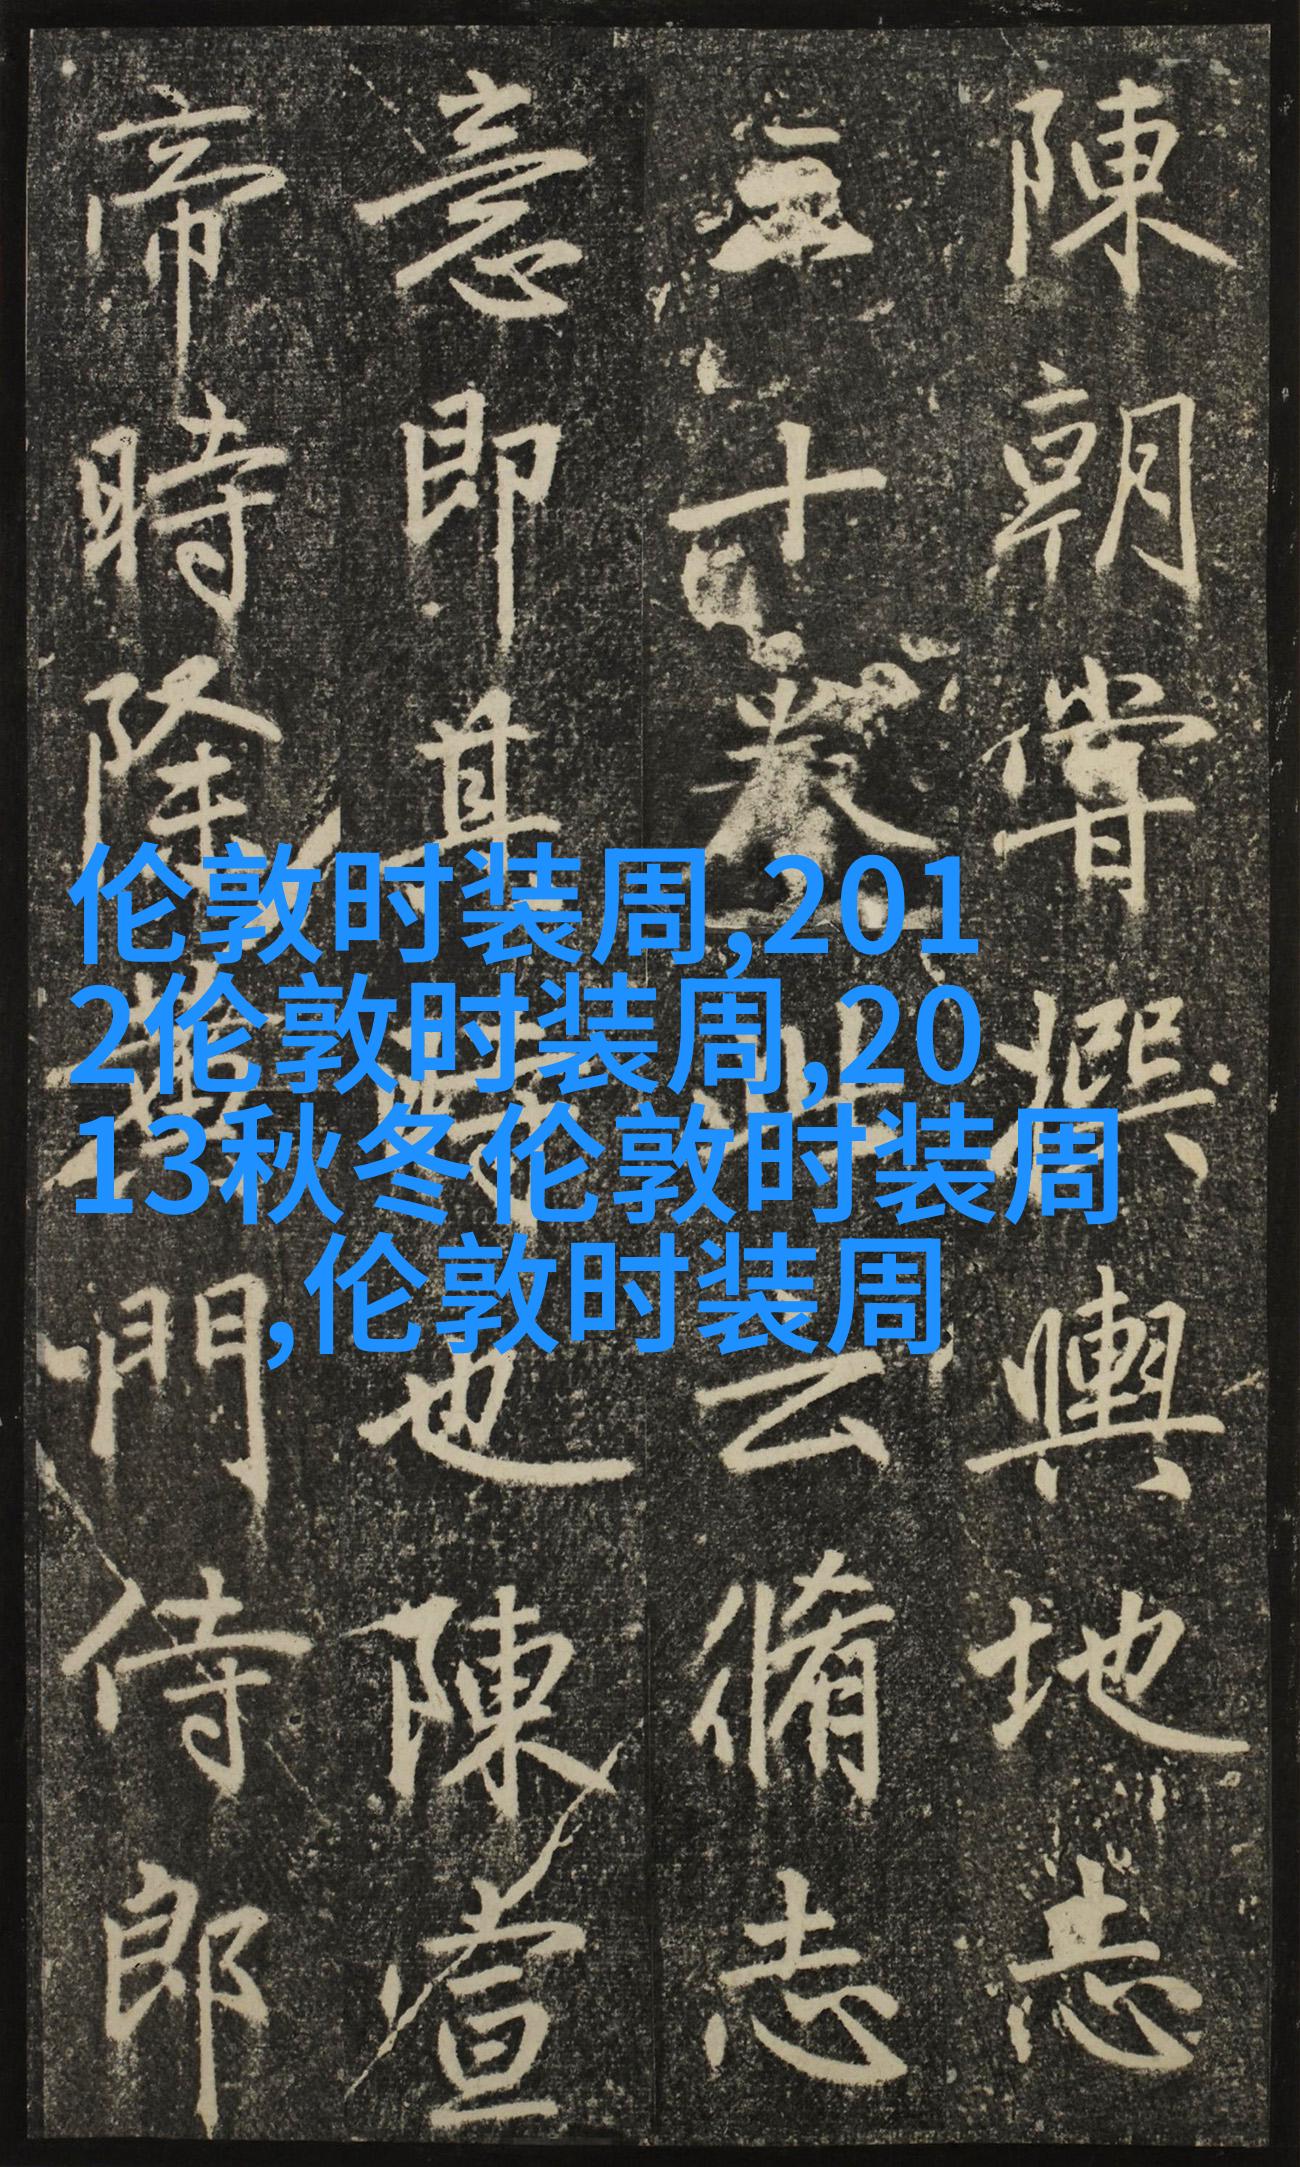 陳朝嘗撰輿地志
三十卷此云脩志
意即其也陳宣
帝時除黃門侍郎
伦敦时装周,201
2伦敦时装周,20
13秋冬伦敦时装周
,伦敦时装周